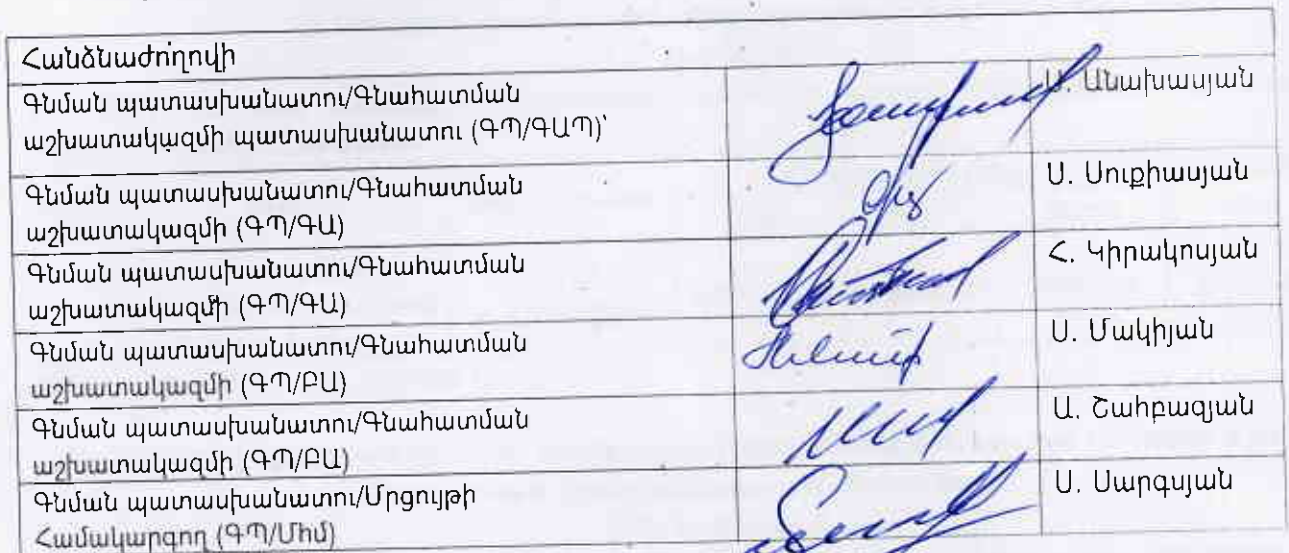 Հանձնաժողովի
Գնման պատասխանատու/Գնահատման
աշխատակազմի պատասխանատու (ԳՊ/ԳԱՊ)՝
Անախասյան
Գնման պատասխանատու/Գնահատման
աշխատակազմի (ԳՊ/ԳԱ)
Ս. Սուքիասյան
Գնման պատասխանատու/Գնահատման
աշխատակազմի (ԳՊ/ԳԱ)
Հ. Կիրակոսյան
Գնման պատասխանատու/Գնահատման
աշխատակազմի (ԳՊ/ԲԱ)
Ս. Մակիյան
Գնման պատասխանատու/Գնահատման
աշխատակազմի (ԳՊ/ԲԱ)
Ա. Շահբազյան
Գնման պատասխանատու/Մրցույթի
Համակարգող (ԳՊ/Միմ)
Ս. Սարգսյան